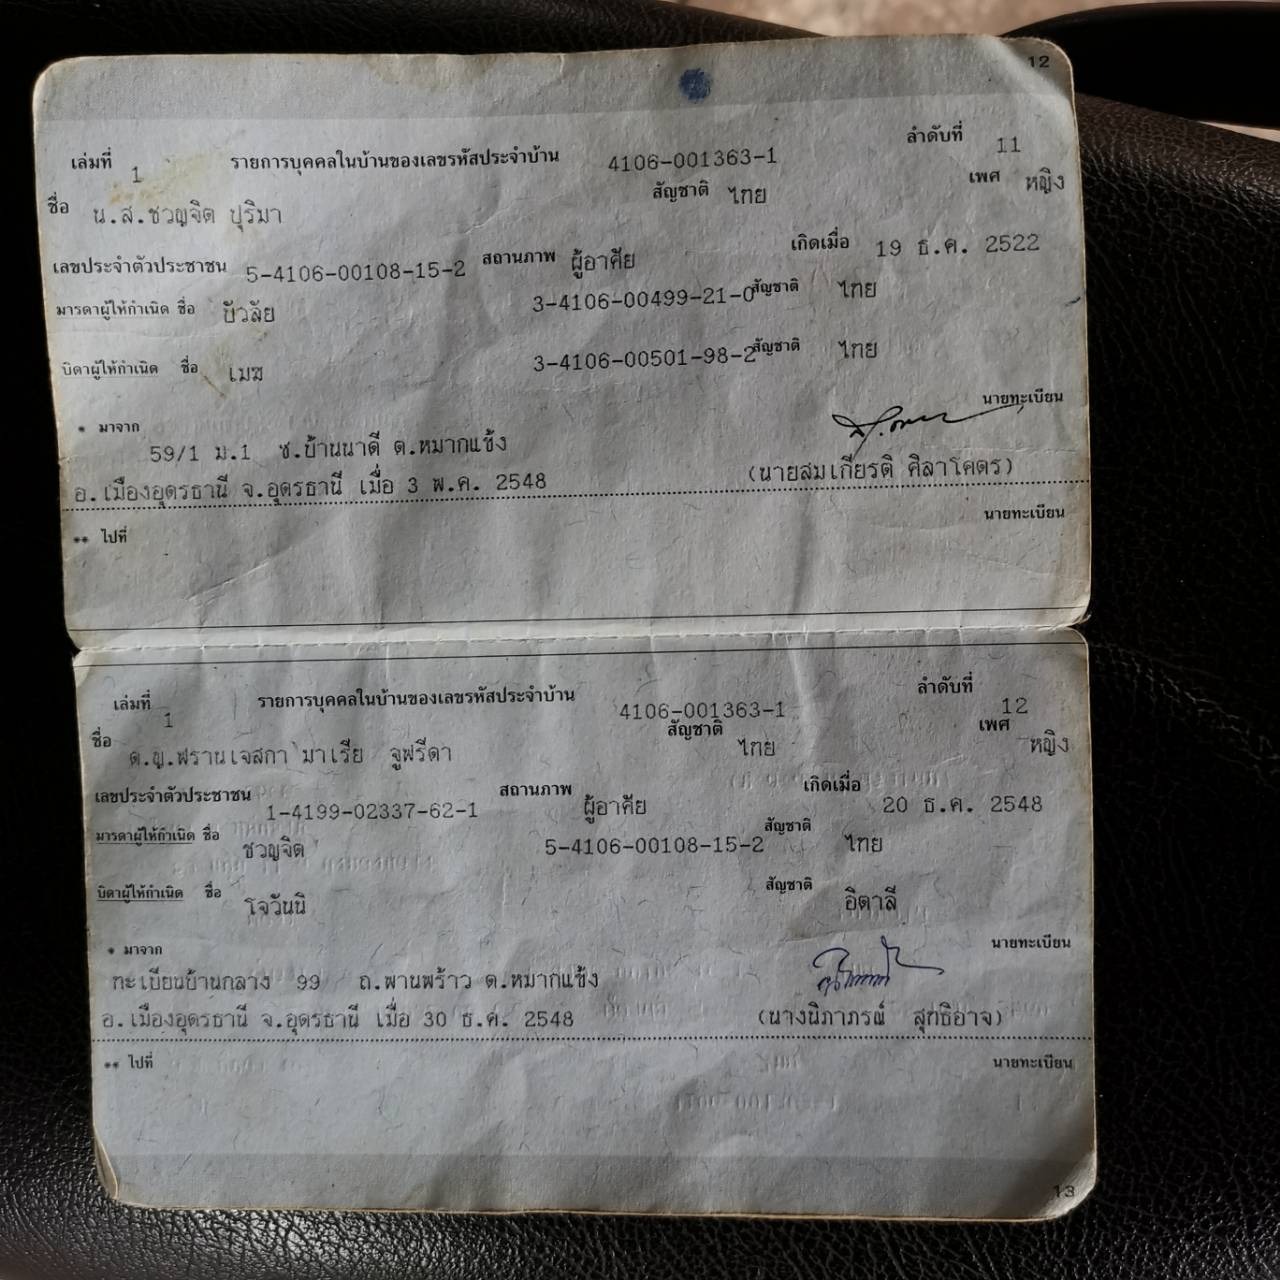 12
เล่มที่ 1 รายการบุคคลในบ้านของเลขรหัสประจำบ้าน 4106-001363-1 ลำดับที่ 11
ชื่อ น.ส.ชวญจิต ปุริมา สัญชาติ ไทย เพศ หญิง
เลขประจำตัวประชาชน 5-4106-00108-15-2 สถานภาพ ผู้อาศัย เกิดเมื่อ 19 ธ.ค. 2522
มารดาผู้ให้กำเนิด ชื่อ บัวลัย 3-4106-00499-21-0 สัญชาติ ไทย
บิดาผู้ให้กำเนิด ชื่อ เมฆ 3-4106-00501-98-2 สัญชาติ ไทย
* มาจาก นายทะเบียน
59/1 ม.1 ซ.บ้านนาดี ต.หมากแข้ง
อ.เมืองอุดรธานี จ.อุดรธานี เมื่อ 3 พ.ค. 2548 (นายสมเกียรติ ศิลาโคตร)
** ไปที่ นายทะเบียน
เล่มที่ 1 รายการบุคคลในบ้านของเลขรหัสประจำบ้าน 4106-001363-1 ลำดับที่ 12
ชื่อ ด.ญ.ฟรานเจสกา มาเรีย จูฟรีดา สัญชาติ ไทย เพศ หญิง
เลขประจำตัวประชาชน 1-4199-02337-62-1 สถานภาพ ผู้อาศัย เกิดเมื่อ 20 ธ.ค. 2548
มารดาผู้ให้กำเนิด ชื่อ ชวญจิต 5-4106-00108-15-2 สัญชาติ ไทย
บิดาผู้ให้กำเนิด ชื่อ โจวันนี สัญชาติ อิตาลี
* มาจาก นายทะเบียน
ทะเบียนบ้านกลาง 99 ถ.พานพร้าว ต.หมากแข้ง
อ.เมืองอุดรธานี จ.อุดรธานี เมื่อ 30 ธ.ค. 2548 (นางนิภาภรณ์ สุทธิอาจ)
** ไปที่ นายทะเบียน
13